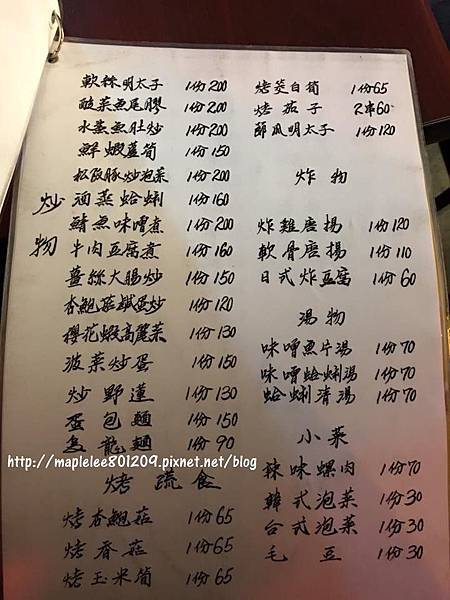 軟絲明太子 1份200
酸菜魚尾膠 1份200
水蓮魚肚炒 1份200
鮮蝦蘆筍 1份150
松阪豚炒泡菜 1份150
酒蒸蛤蜊 1份160
鯖魚味噌煮 1份200
牛肉豆腐煮 1份160
薑絲大腸炒 1份150
杏鮑菇鹹蛋炒 1份120
櫻花蝦高麗菜 1份130
菠菜炒蛋 1份150
炒野蓮 1份130
蛋包麵 1份150
烏龍麵 1份90
炒物
烤蔬食
烤杏鮑菇 1份65
烤香菇 1份65
烤玉米筍 1份65
烤茭白筍 1份65
烤茄子 2串60
明太子 1份120
炸物
炸雞唐揚 1份120
軟骨唐揚 1份110
日式炸豆腐 1份60
湯物
味噌魚片湯 1份70
味噌蛤蜊湯 1份70
蛤蜊清湯 1份70
小菜
辣味螺肉 1份70
韓式泡菜 1份30
台式泡菜 1份30
毛豆 1份30
http://maplelee801209.pixnet.net/blog